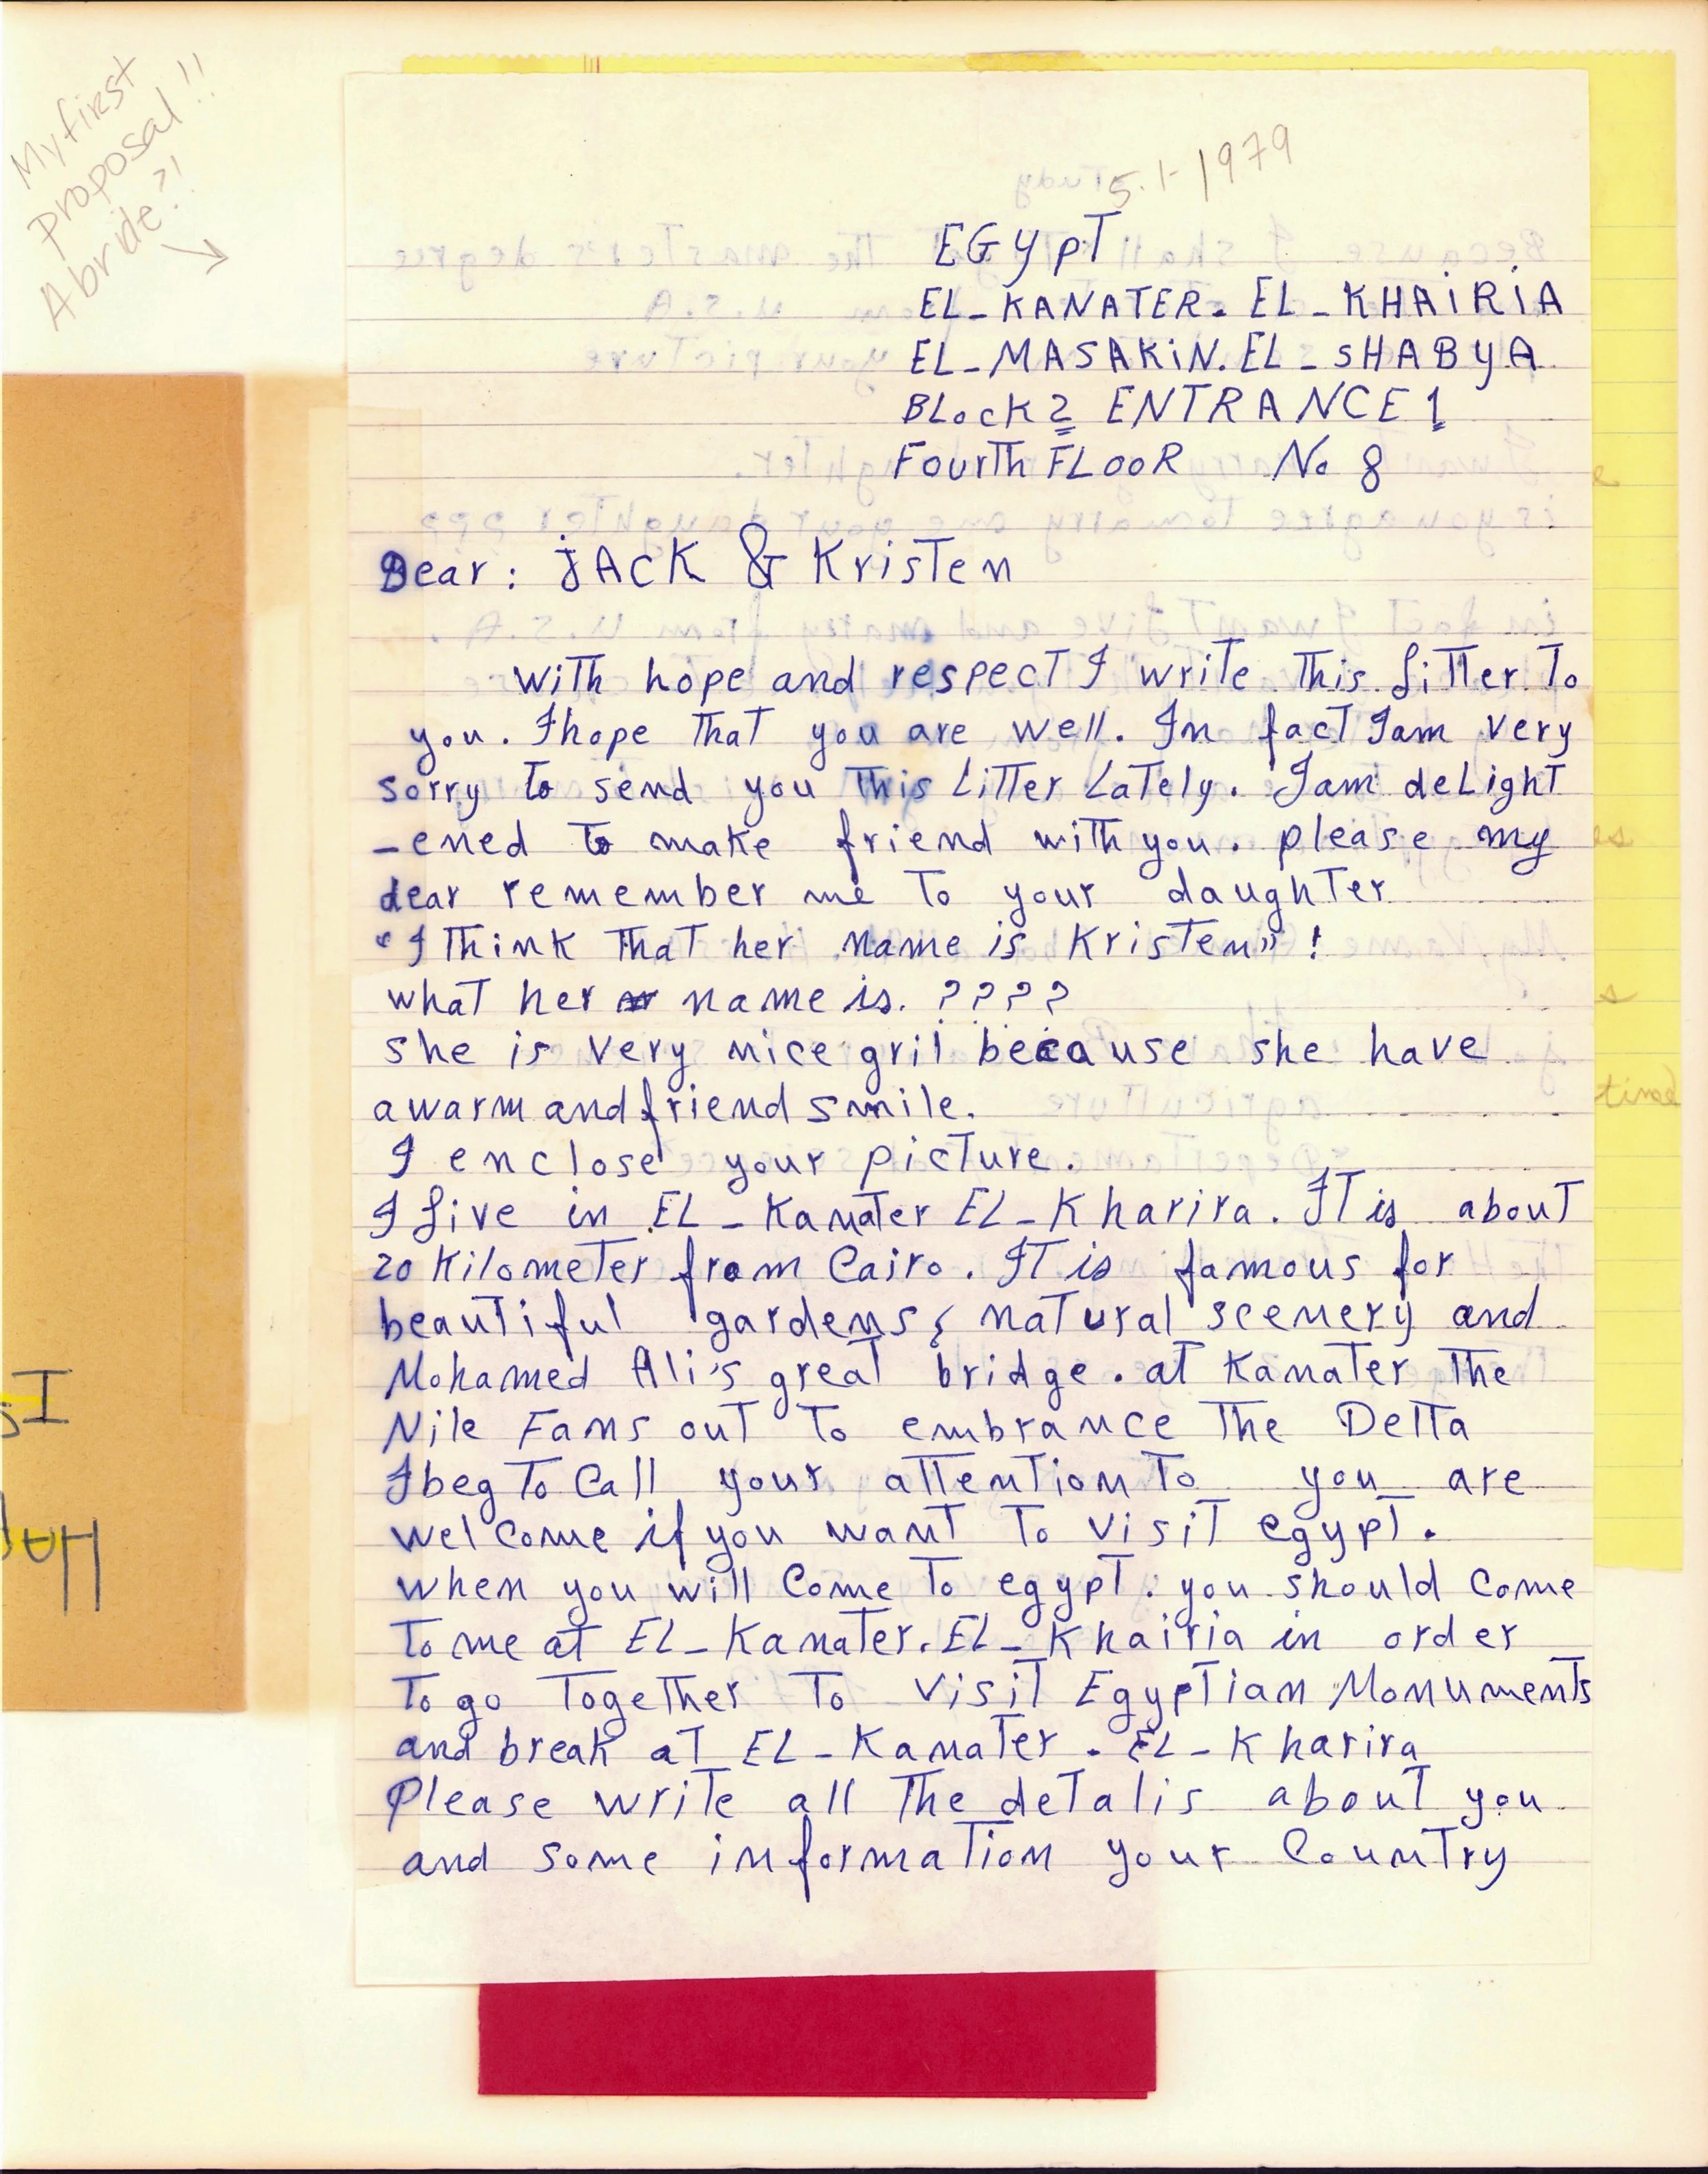 My first
proposal!!
A bride?!
5.1-1979
EGYPT
EL_KANATER. EL_KHAIRIA
EL_MASAKIN. EL_SHABYA
BLocK 2 ENTRANCE 1
FourTh FLooR No 8
Dear: JACK & KrisTen
With hope and respecT I wriTe This LiTTer To
you. I hope ThaT you are well. In facT I am very
sorry To send you This LiTTer LaTely. I am deLighT
-ened To make friend with you. please my
dear remember me To your daughTer
"I Think ThaT her name is KrisTen" !
whaT her name is. ????
she is very nice gril because she have
a warm and friend smile.
I enclose your picTure.
I Live in EL_KanaTer EL_Kharira. IT is abouT
20 KilomeTer from Cairo. IT is famous for
beauTiful gardens, naTural scenery and
Mohamed Ali's greaT bridge. aT KanaTer The
Nile Fans ouT To embrance The DelTa
I beg To Call your aTTenTion To you are
welcome if you wanT To visiT egypT.
when you will Come To egypT. you should Come
To me aT EL_KanaTer. EL_Khairia in order
To go TogeTher To visiT EgypTian MonumenTs
and break aT EL_KanaTer. EL_Kharira
Please wriTe all The deTalis abouT you
and some informaTion your CounTry